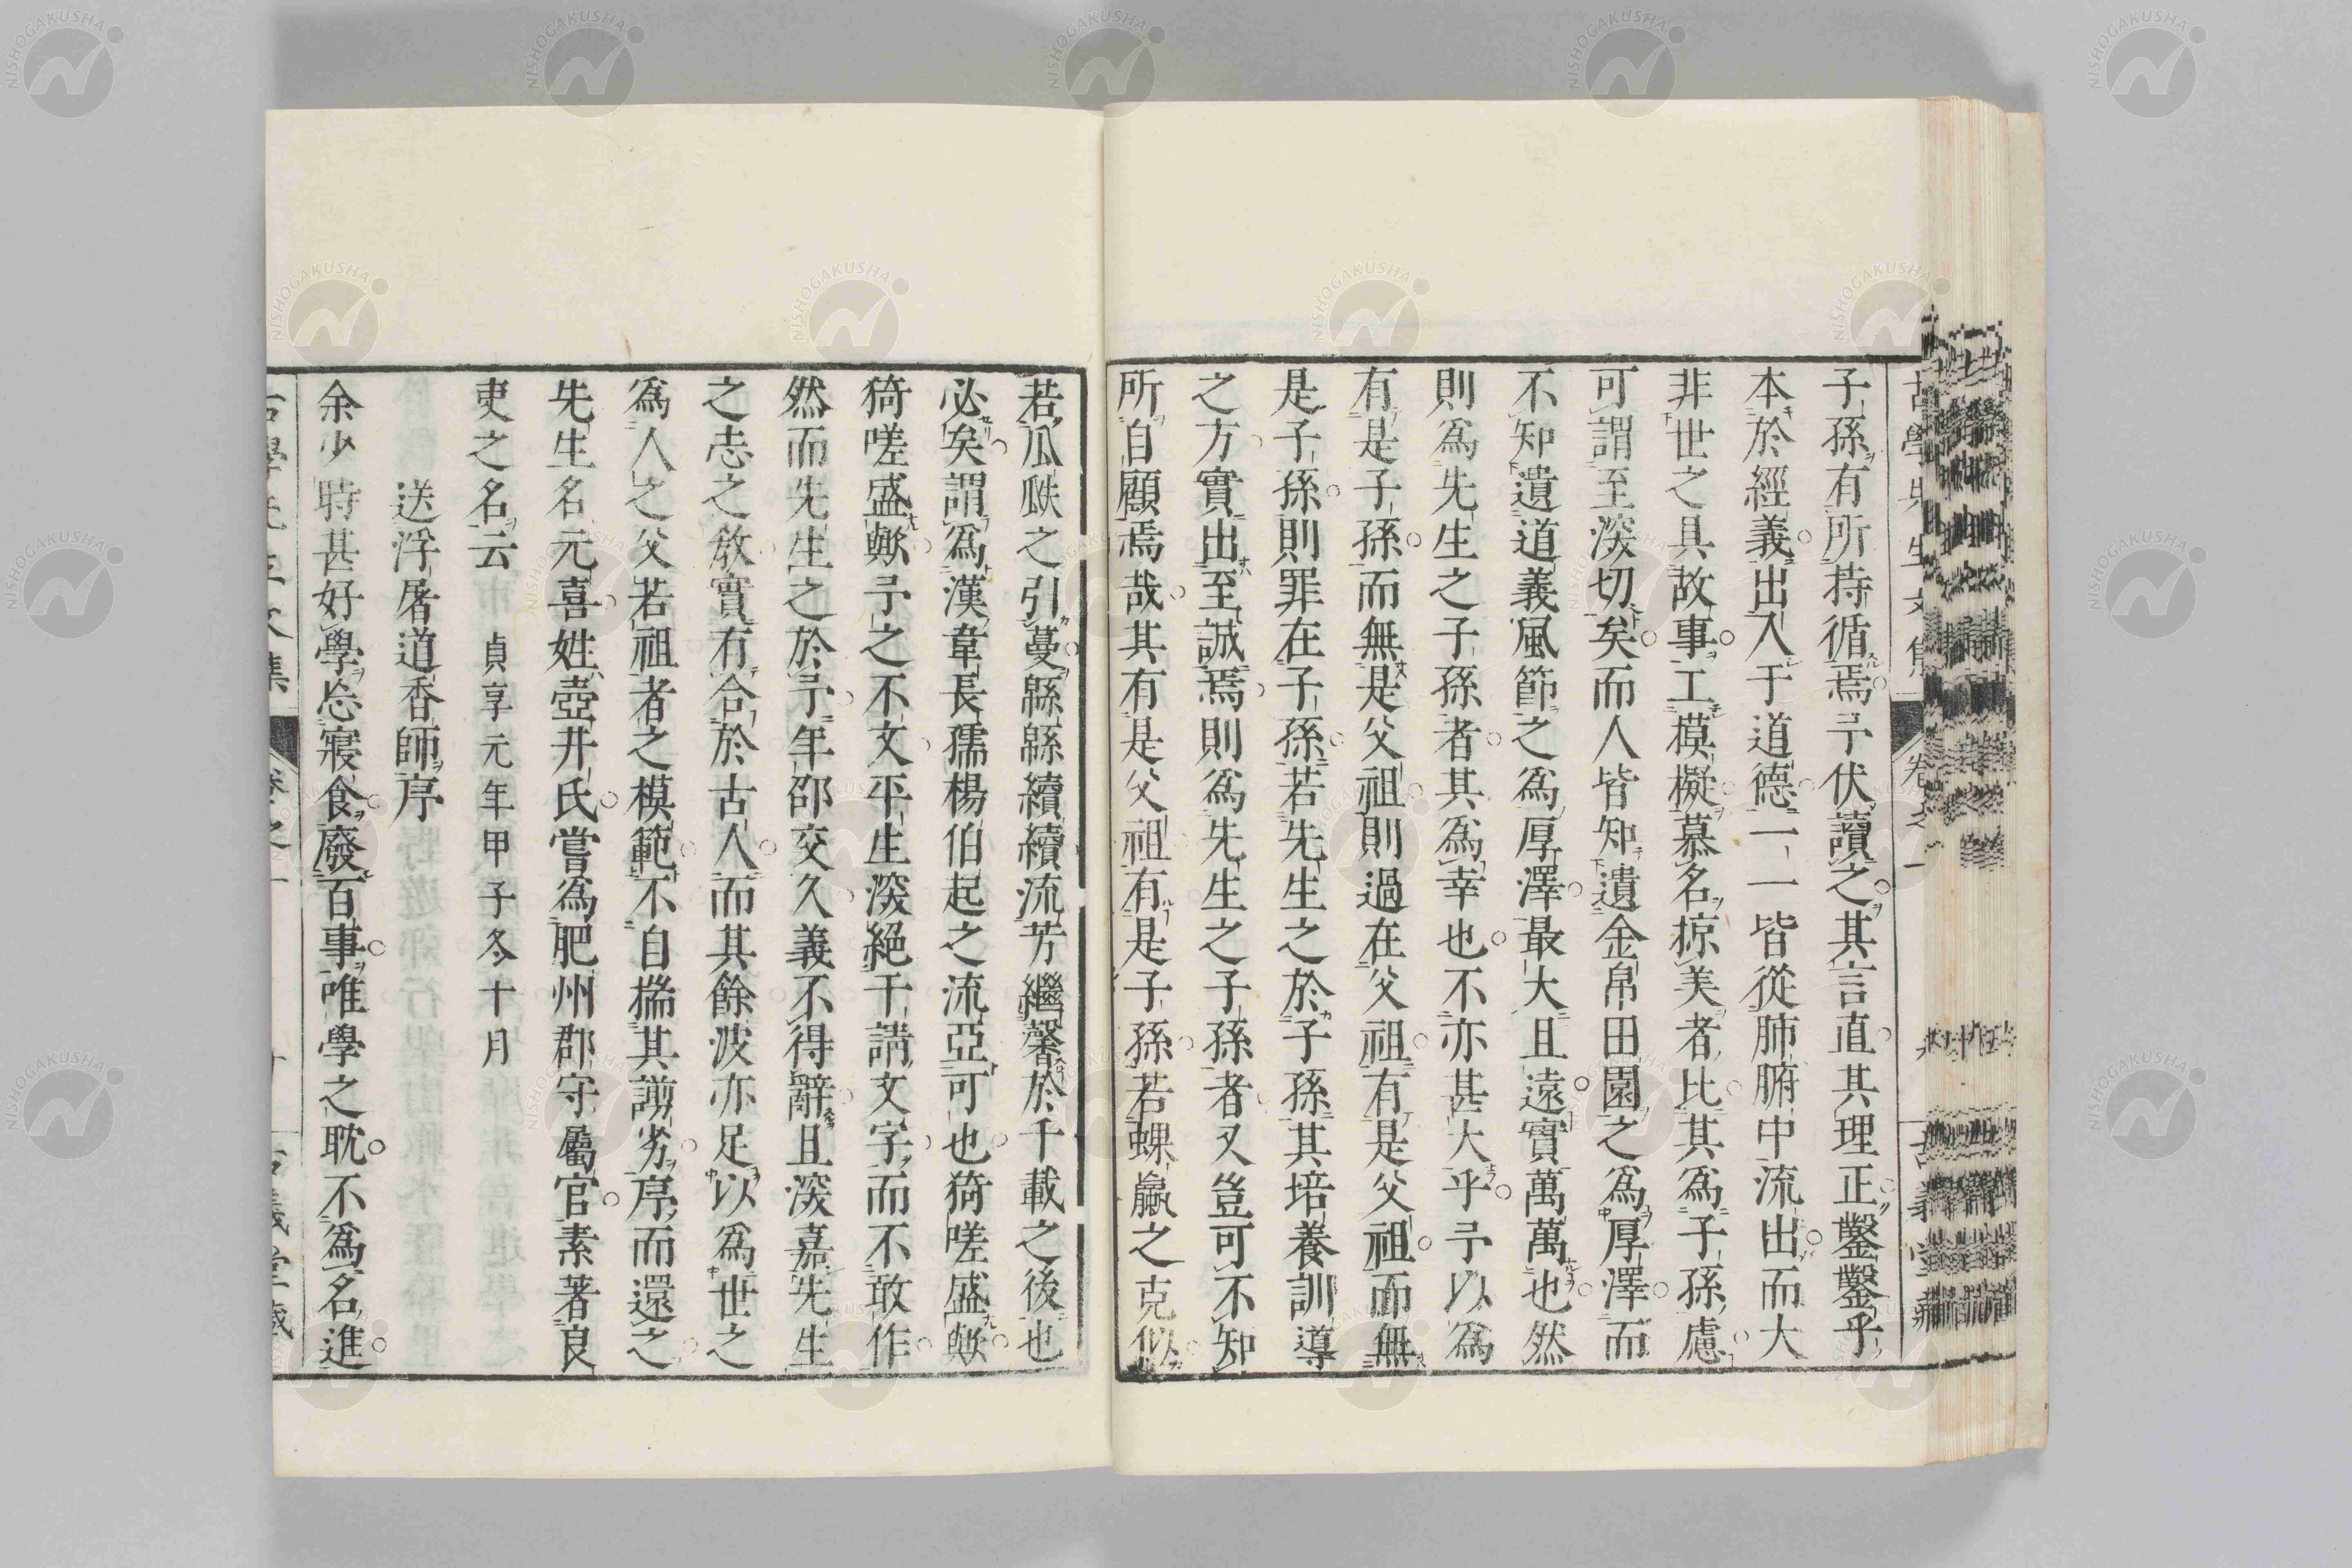 子孫有所持循焉予伏讀之其言直其理正鑿鑿乎
本於經義出入于道德一一皆從肺腑中流出而大
非世之具故事工模擬慕名掠美者比其為子孫慮
可謂至深切矣而人皆知遺金帛田園之為厚澤而
不知遺道義風節之為厚澤最大且遠實萬萬也然
則為先生之子孫者其為幸也不亦甚大乎予以為
有是子孫而無是父祖則過在父祖有是父祖而無
是子孫則罪在子孫若先生之於子孫其培養訓導
之方實出至誠焉則為先生之子孫者又豈可不知
所自顧焉哉其有是父祖有是子孫若蜾蠃之克似
若瓜瓞之引蔓緜緜續續流芳繼馨於千載之後也
必矣謂為漢韋長孺楊伯起之流亞可也猗嗟盛歟
猗嗟盛歟予之不文平生深絕干請文字而不敢作
然而先生之於予年邵交久義不得辭且深嘉先生
之志之敦實有合於古人而其餘波亦足以為世之
為人之父若祖者之模範不自揣其謭劣序而還之
先生名元喜姓壺井氏嘗為肥州郡守屬官素著良
吏之名云 貞享元年甲子冬十月
送浮屠道香師序
余少時甚好學忘寢食廢百事唯學之耽不為名進
古學先生文集 卷之一 古義堂藏
NISHOGAKUSHA